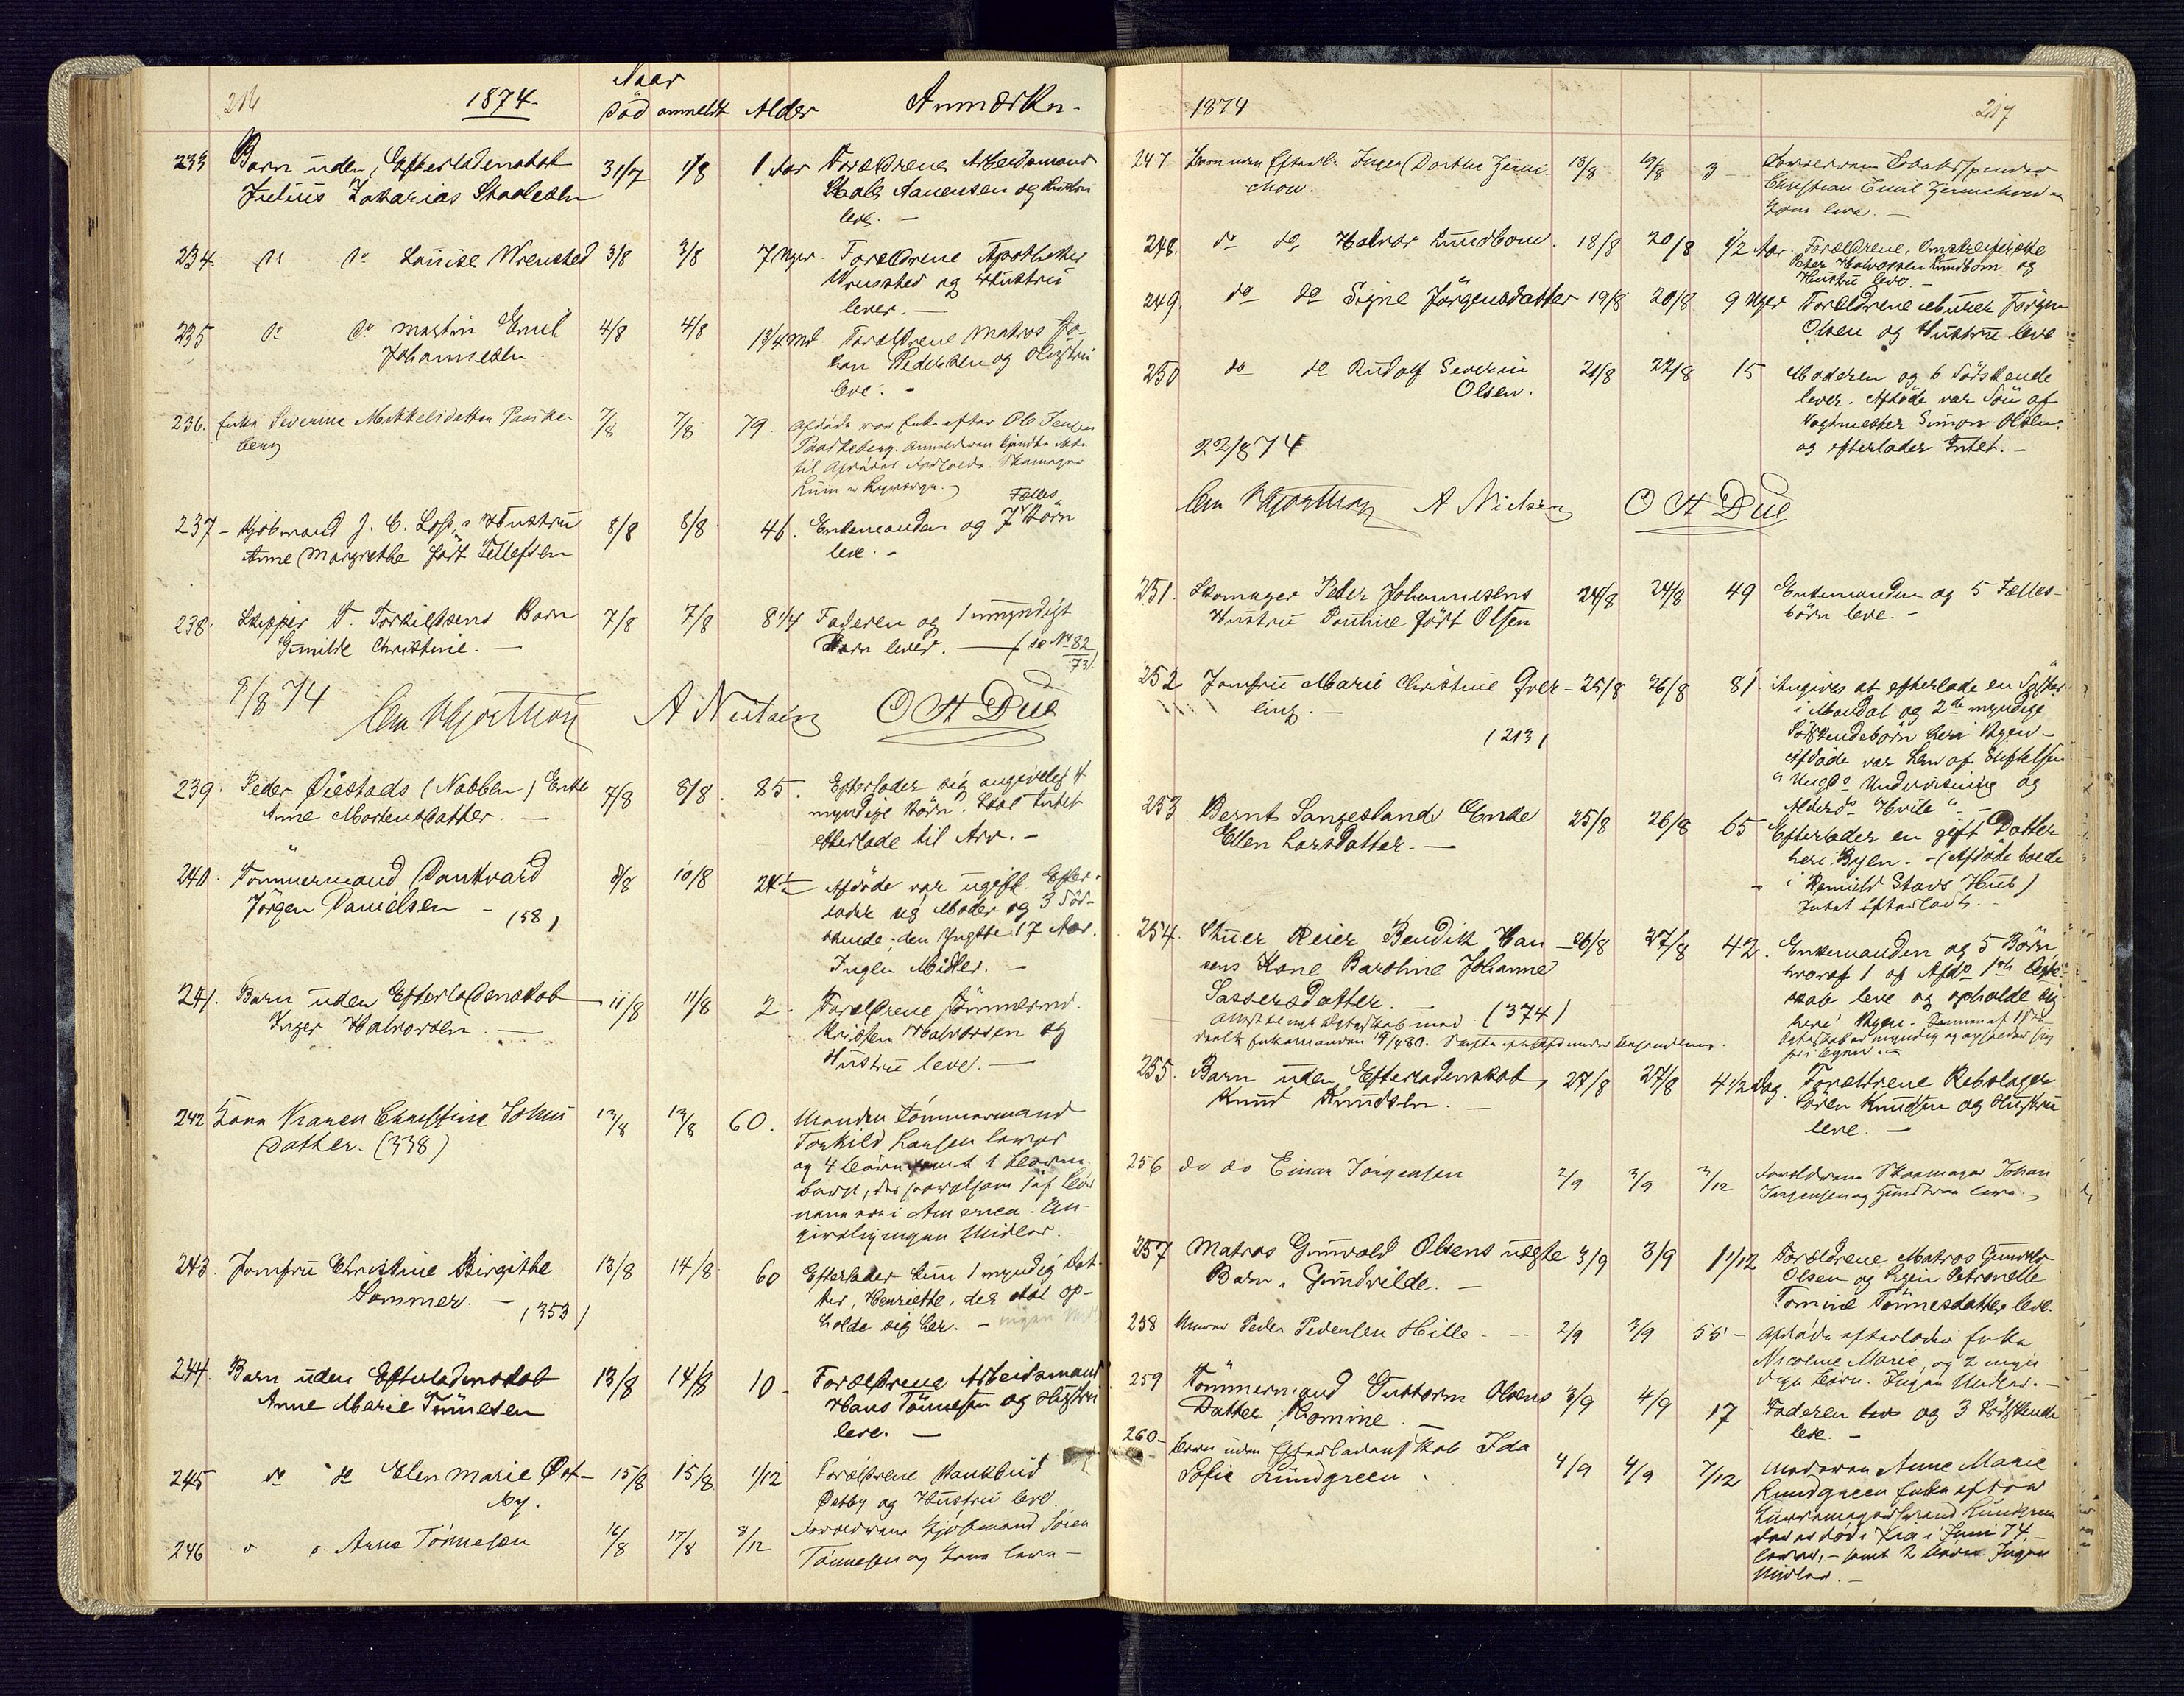 216
1874
Naar
död anmeldt Alder Anmærkn.
233 Barn uden Efterladenskab 31/7 1/8 1 Aar Forældrene Arbeidsmand
Julius Zakarias Staalesen
Staale Aanensen og Hustru
leve. —
234. do do Louise Wrensted 3/8 3/8 7 Uger. Forældrene Apotheker
Wrensted og Hustru
lever. —
235 do do Martin Emil 4/8 4/8 1 3/4 Md. Forældrene Matros Jo-
Johannesen
han Pedersen og Hustru
leve. -
236. Enke Severine Mikkelsdatter Paaske- 7/8 7/8 79. Afdøde var Enke efter Ole Jensen
berg
Paaskeberg. Anmelderen kjendte ikke
til Afdødes
237 - Kjöbmand J. C. Hustru 8/8 8/8 46. Enkemanden og 7 Fælles Börn
Anne Margrethe født Tellefsen
leve. -
238. Skipper T. Torkildsens Barn 7/8 7/8 8 1/4 Faderen og 1 umyndigt
Gunilde Christine. —
Barn lever. — (se No 82/73)
8/8 74
A Nielsen O H Due
239. Peder Øiestads (Nabben) Enke 7/8 8/8. 85. Efterlader sig angivelig 4
Anne Mortensdatter. —
myndige Börn. Skal Intet
efterlade til Arv. -
240. Tömmermand Dankvard 8/8 10/8 24 1/2 Afdöde var ugift. Efter-
Jörgen Danielsen - (58)
lader sig Moder og 3 Sød-
skende; den Yngste 17 Aar.
Ingen Midler. -
241. Barn uden Efterladenskab 11/8 11/8 2. Forældrene Tömmermd.
Inger Halvorsen. —
Halvorsen og
Hustru leve. —
242 Kone Maren Christine Johns 13/8 13/8 60. Manden Tömmermand
datter. (338)
Torkild Larsen lever
og 4 Börn samt 1
i America. An-
givelig ingen Midler.
243. Jomfru Christine Birgithe 13/8 14/8 60 Efterlader kun 1 myndig Dat-
Sommer. - (353)
ter, Henriette, der skal op-
holde sig her. -
244. Barn uden Efterladenskab 13/8 14/8 10. Forældrene Arbeidsmand
Anne Marie Tönnesen
Hans Tönnesen og Hustru
leve. —
245 do do Elen Marie Øst- 15/8 15/8 1/12 Forældrene Bankbud
by.
Østby og Hustru leve.
246 " " Anne Tönnesen 16/8 17/8 8/12 Forældrene Kjöbmand Sören
Tönnesen og Kone leve -
1874
217
247 Barn uden Efterl. Inger Dorthe 18/8 19/8 3 - Forældrene Tobakspinder
Christian Emil og
Kone leve. -
248. do do Halvor Lundbom. 18/8 20/8 1/2 Aar Forældrene,
Peter Halvorsen Lundbom og
Hustru leve. -
249. do do Signe Jörgensdatter 19/8 20/8 9 Uger Forældrene Jörgen
Olsen og Hustru leve
250 do do Rudolf Severin 21/8 22/8 15 Moderen og 6 Södskende
Olsen.
lever. Afdöde var Sön af
Vagtmester Simon Olsen,
og efterlader Intet. -
22/8 74
A Nielsen O H Due
251. Skomager Peder Johannesens 24/8 24/8 49 Enkemanden og 5 Fælles-
Hustru Pauline født Olsen
börn leve. -
252 Jomfru Marie Christine - 25/8 26/8 81 Angives at efterlade en Söster
ling. -
i Mandal og 2de myndige
(213)
Södskendebörn her i Byen -
Afdöde var Lem af Stiftelsen
"Ungds Undervisning og
Alderds Hvile" -
253. Bernt Langeslands Enke 25/8 26/8 65 Efterlader en gift Datter
Ellen Larsdatter. —
her i Byen. - (Afdöde boede
i Hus)
Intet efterladt. -
254. Stuer Reier Bendik Han - 26/8 27/8 42. Enkemanden og 5 Börn
sens Kone Baroline Johanne
hvoraf 1 af Afds 1ste Ægte-
Sassersdatter. — (374)
skab leve og opholde sig
her i Byen.
255. Barn uden Efterladenskab, 27/8 27/8 4 1/2 Dag. Forældrene Rebslager
Knud Knudsen. —
Sören Knudsen og Hustru
leve. —
256 do do Einar Jörgensen 2/9 3/9 3/12 Forældrene Skomager Johan
Jörgensen og Hustru leve. -
257 Matros Gunvald Olsens uægte 3/9 3/9 1 1/12 Forældrene Matros Gunvald
Barn, Gundvilde. —
Olsen og Petronelle
Tomine Tönnesdatter leve.
258 Murer Peder Pedersen Hille - 2/9 3/9 55 - Afdöde efterlader Enke
Nicoline Marie, og 2 myn
dige Börn. Ingen Midler. -
259 Tömmermand Guttorm Olsens 3/9 4/9 17 Faderen og 3 Södskende
Datter, Tomine. —
leve. -
260 - Barn uden Efterladenskab Ida 4/9 4/9 7/12 Moderen Anne Marie
Sofie Lundgreen.
Lundgreen Enke efter
Lundgreen
der er död i i Juni 74, -
lever, - samt 2 Börn. Ingen
Midler. -